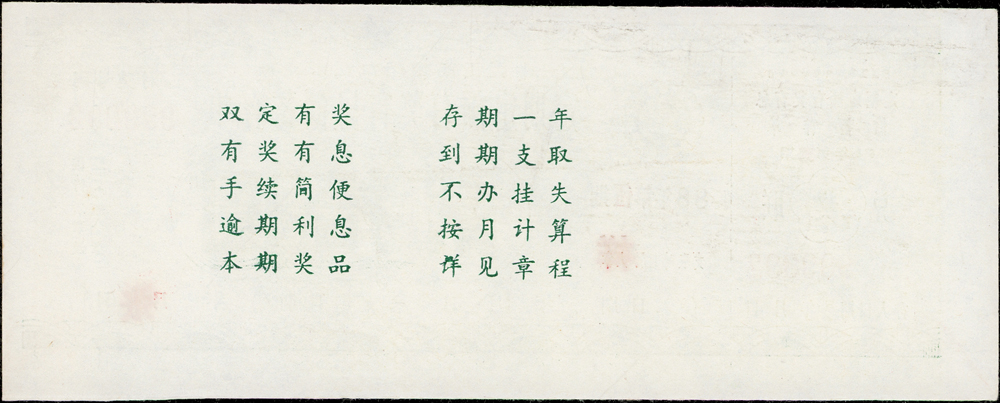 双定有奖 存期一年
有奖有息 到期支取
手续简便 不办挂失
逾期利息 按月计算
本期奖品 详见章程